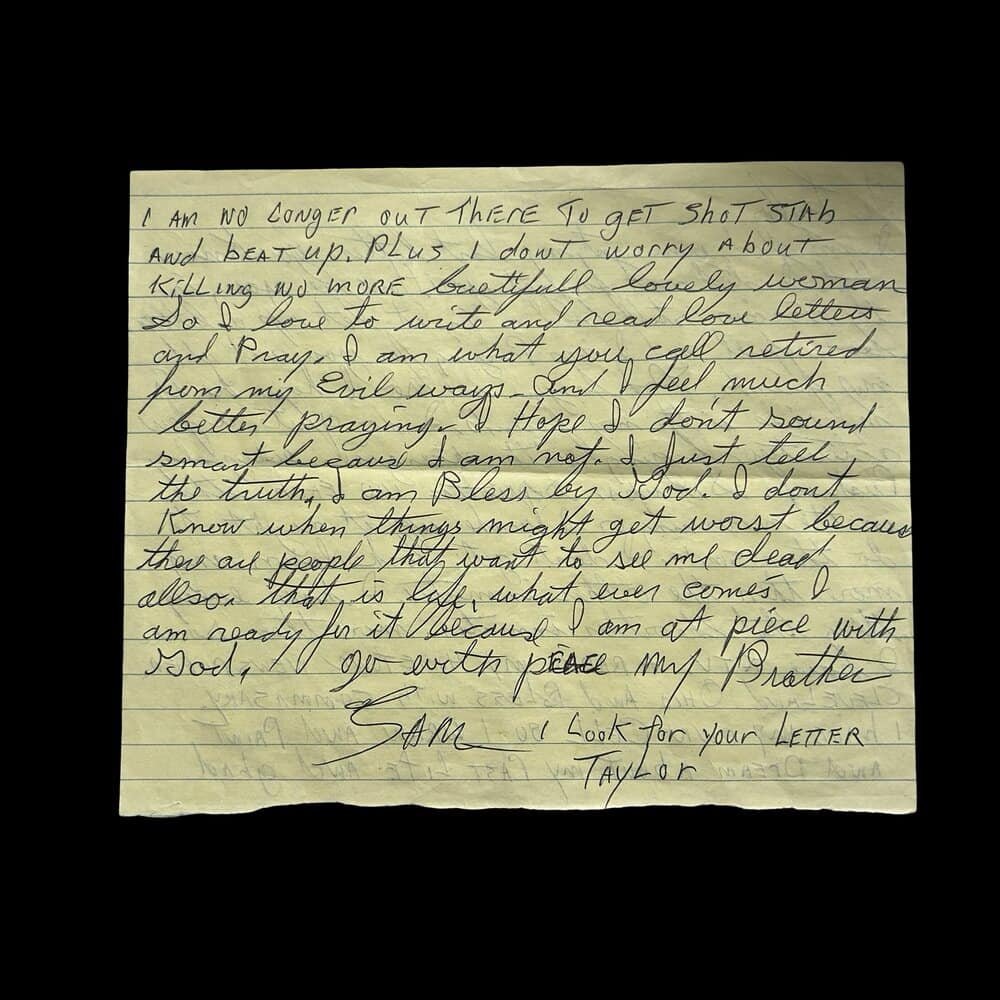 I AM NO LONGER OUT THERE TO GET SHOT STAB
AND BEAT UP. PLUS I dONT WORRY ABOUT
KILLING NO MORE buetifull lovely woman
So I love to write and read love letters
and Pray. I am what you call retired
from my Evil ways. and I feel much
better praying. I Hope I don't sound
smart becaus I am not. I Just tell
the truth, I am Bless by God. I dont
Know when things might get worst becaus
there are people that want to see me dead
allso. that is life, what ever comes I
am ready for it because I am at piece with
God, go with my Brother
SAM I LOOK for your LETTER
TAYLOR